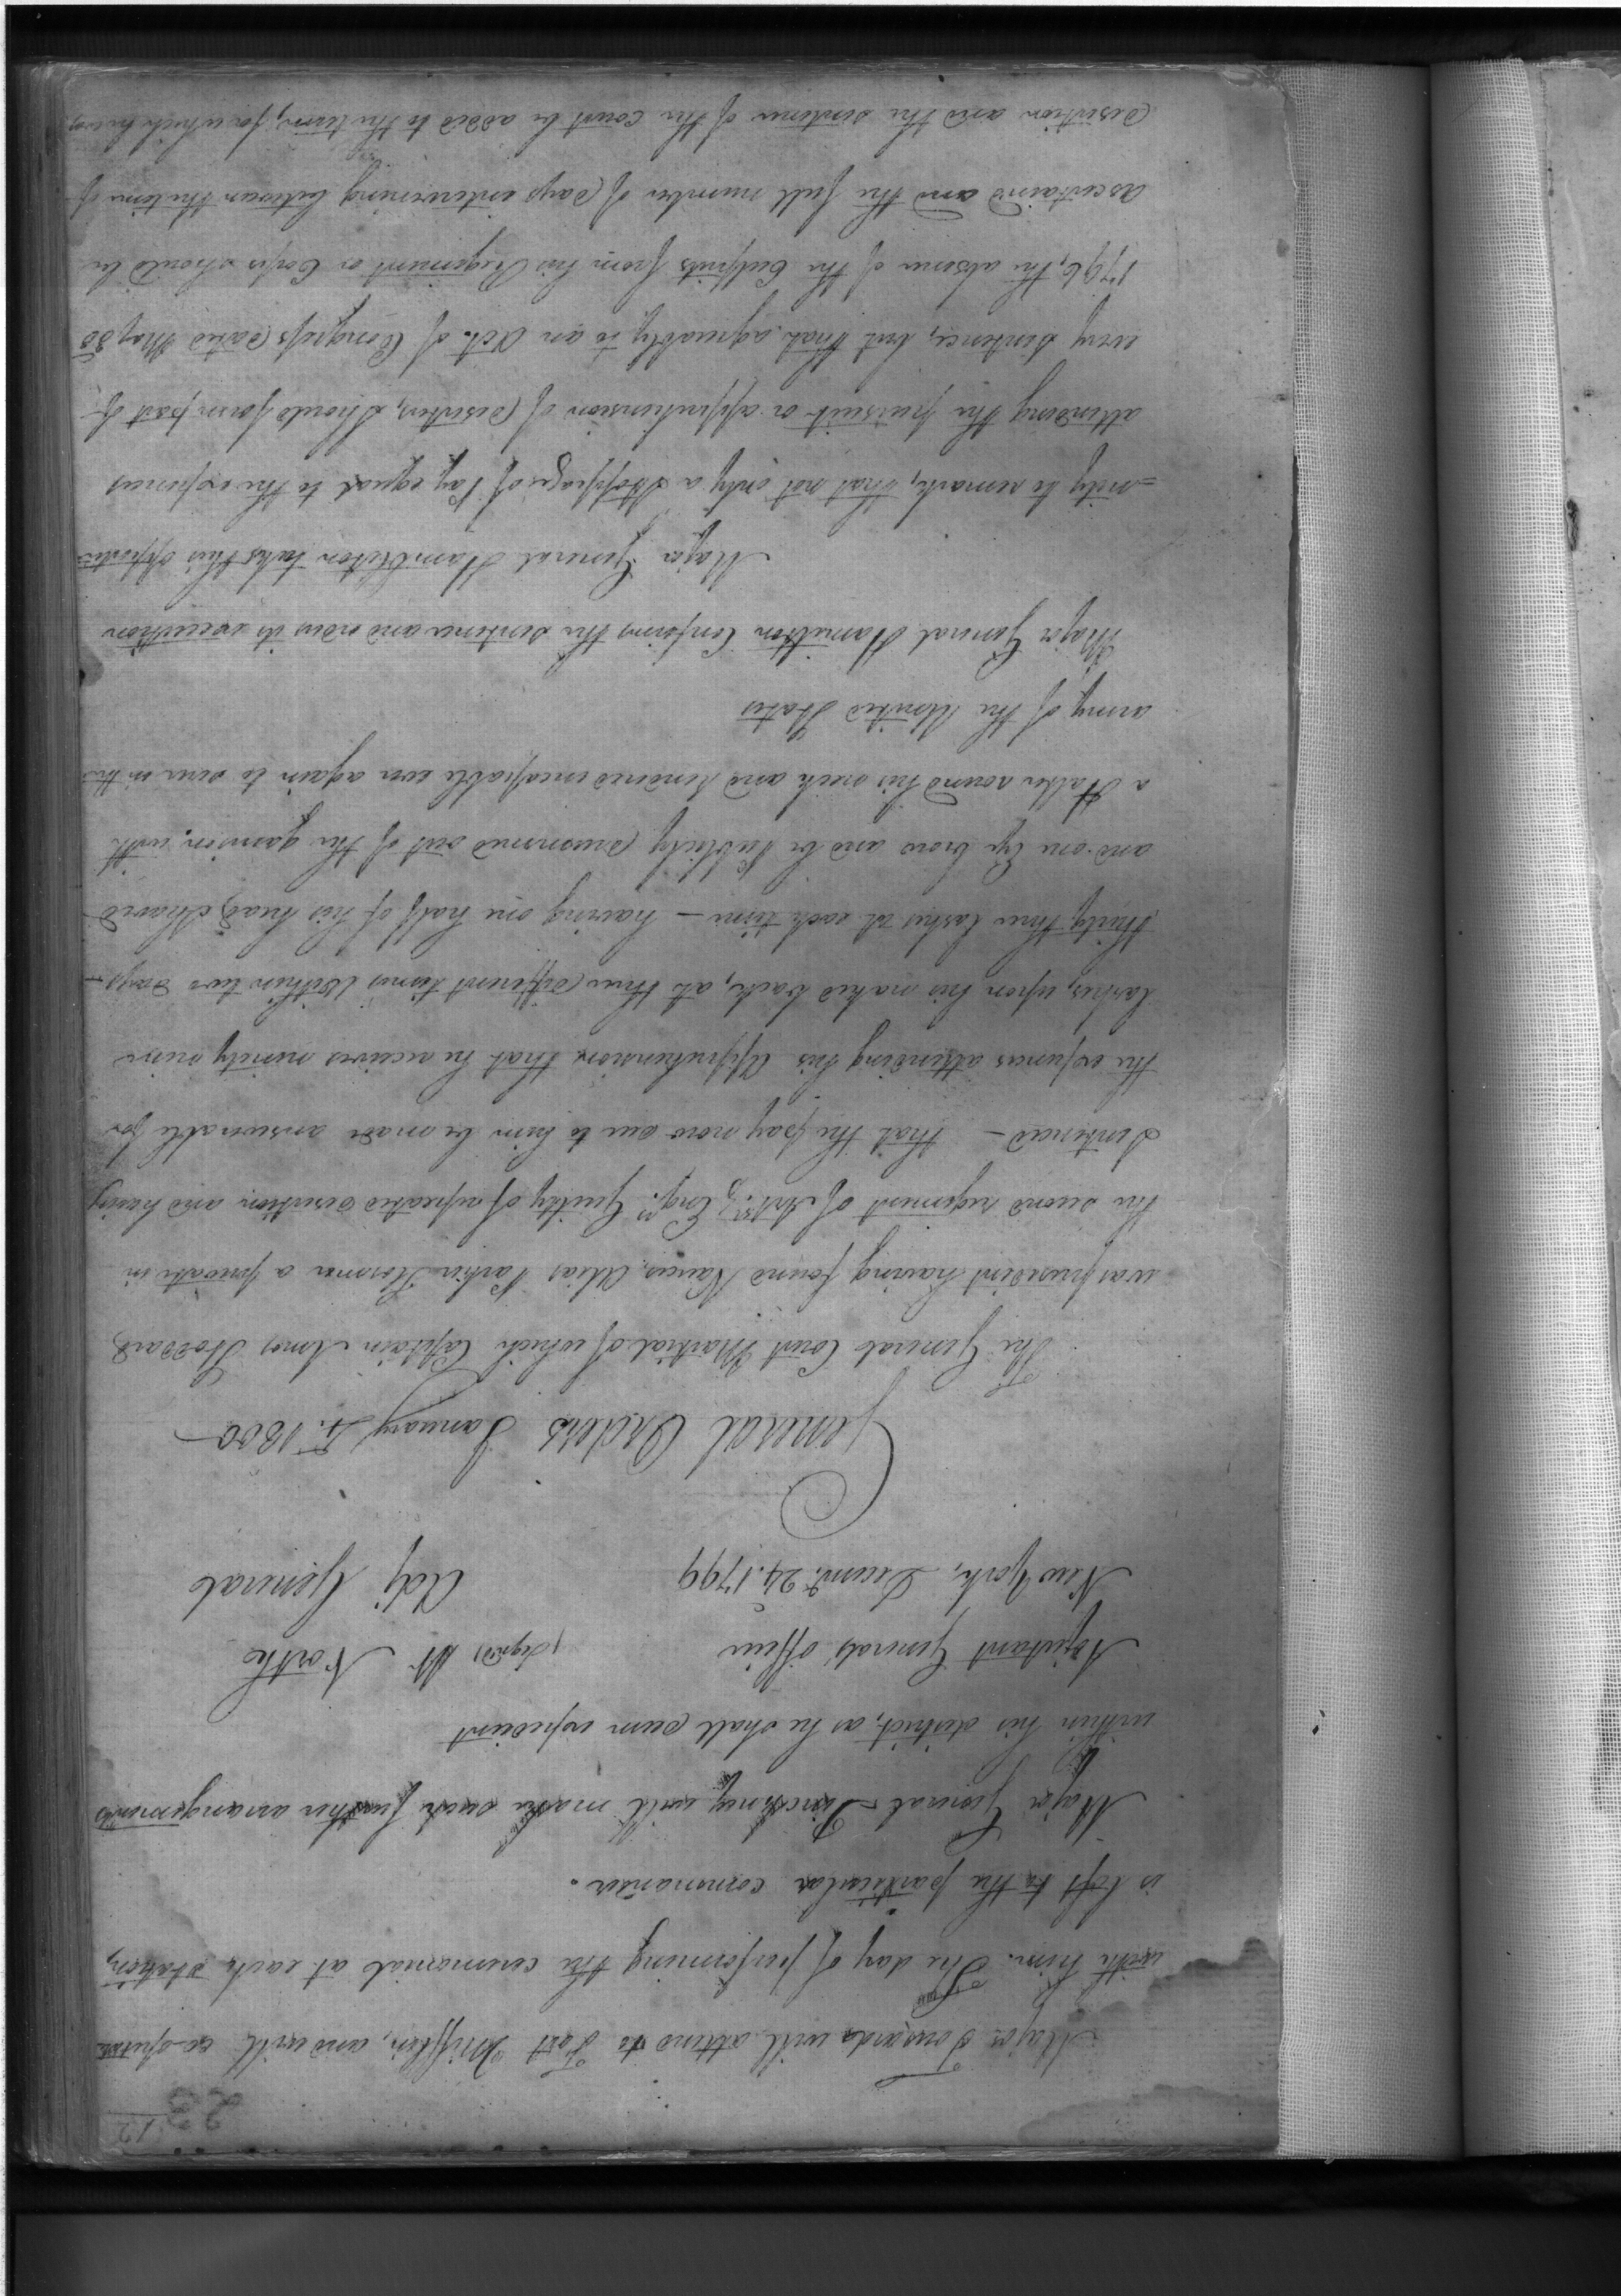 12
23
Major Tousard will attend to Fort Mifflin, and will co-operate
with him. The day of performing the ceremonial at each station,
is left to the particular commander.
Major General Pinckney will make such further arrangements
within his district, as he shall deem expedient
Adjutant Generals office (signed) W North
New York, Decemr. 24, 1799 Adj General
General Orders January 1. 1800
The General Court Martial of which Captain Amos Stoddard,
was president having found Alias Parker a private in
the second regiment of Arty. & Engrs. Guilty of repeated desertion and having
Sentenced - that the pay now due to him be made answerable for
the expences attending his Apprehension that he receives ninety nine
lashes, upon his naked back, at three different times within two days
thirty three lashes at each time - having one half of his head shaved
and one Eye brow and be Publicly drummed out of the garrison with
a Halter round his neck and rendered incapable ever again to serve in the
army of the United States
Major General Hamilton Confirms the sentence and orders its execution
Major General Hamilton takes this opportu=
=nity to remark, that not only a stoppage of Pay equal to the expences
attending the pursuit or apprehension of deserters, should form part of
every sentence, but that agreeably to an Act of Congress dated May 30
1796, the absence of the Culprits from his Regiment or Corps should be
ascertained and the full number of days intervening between the time of
desertion and the sentence of the court be added to the term, for which he was